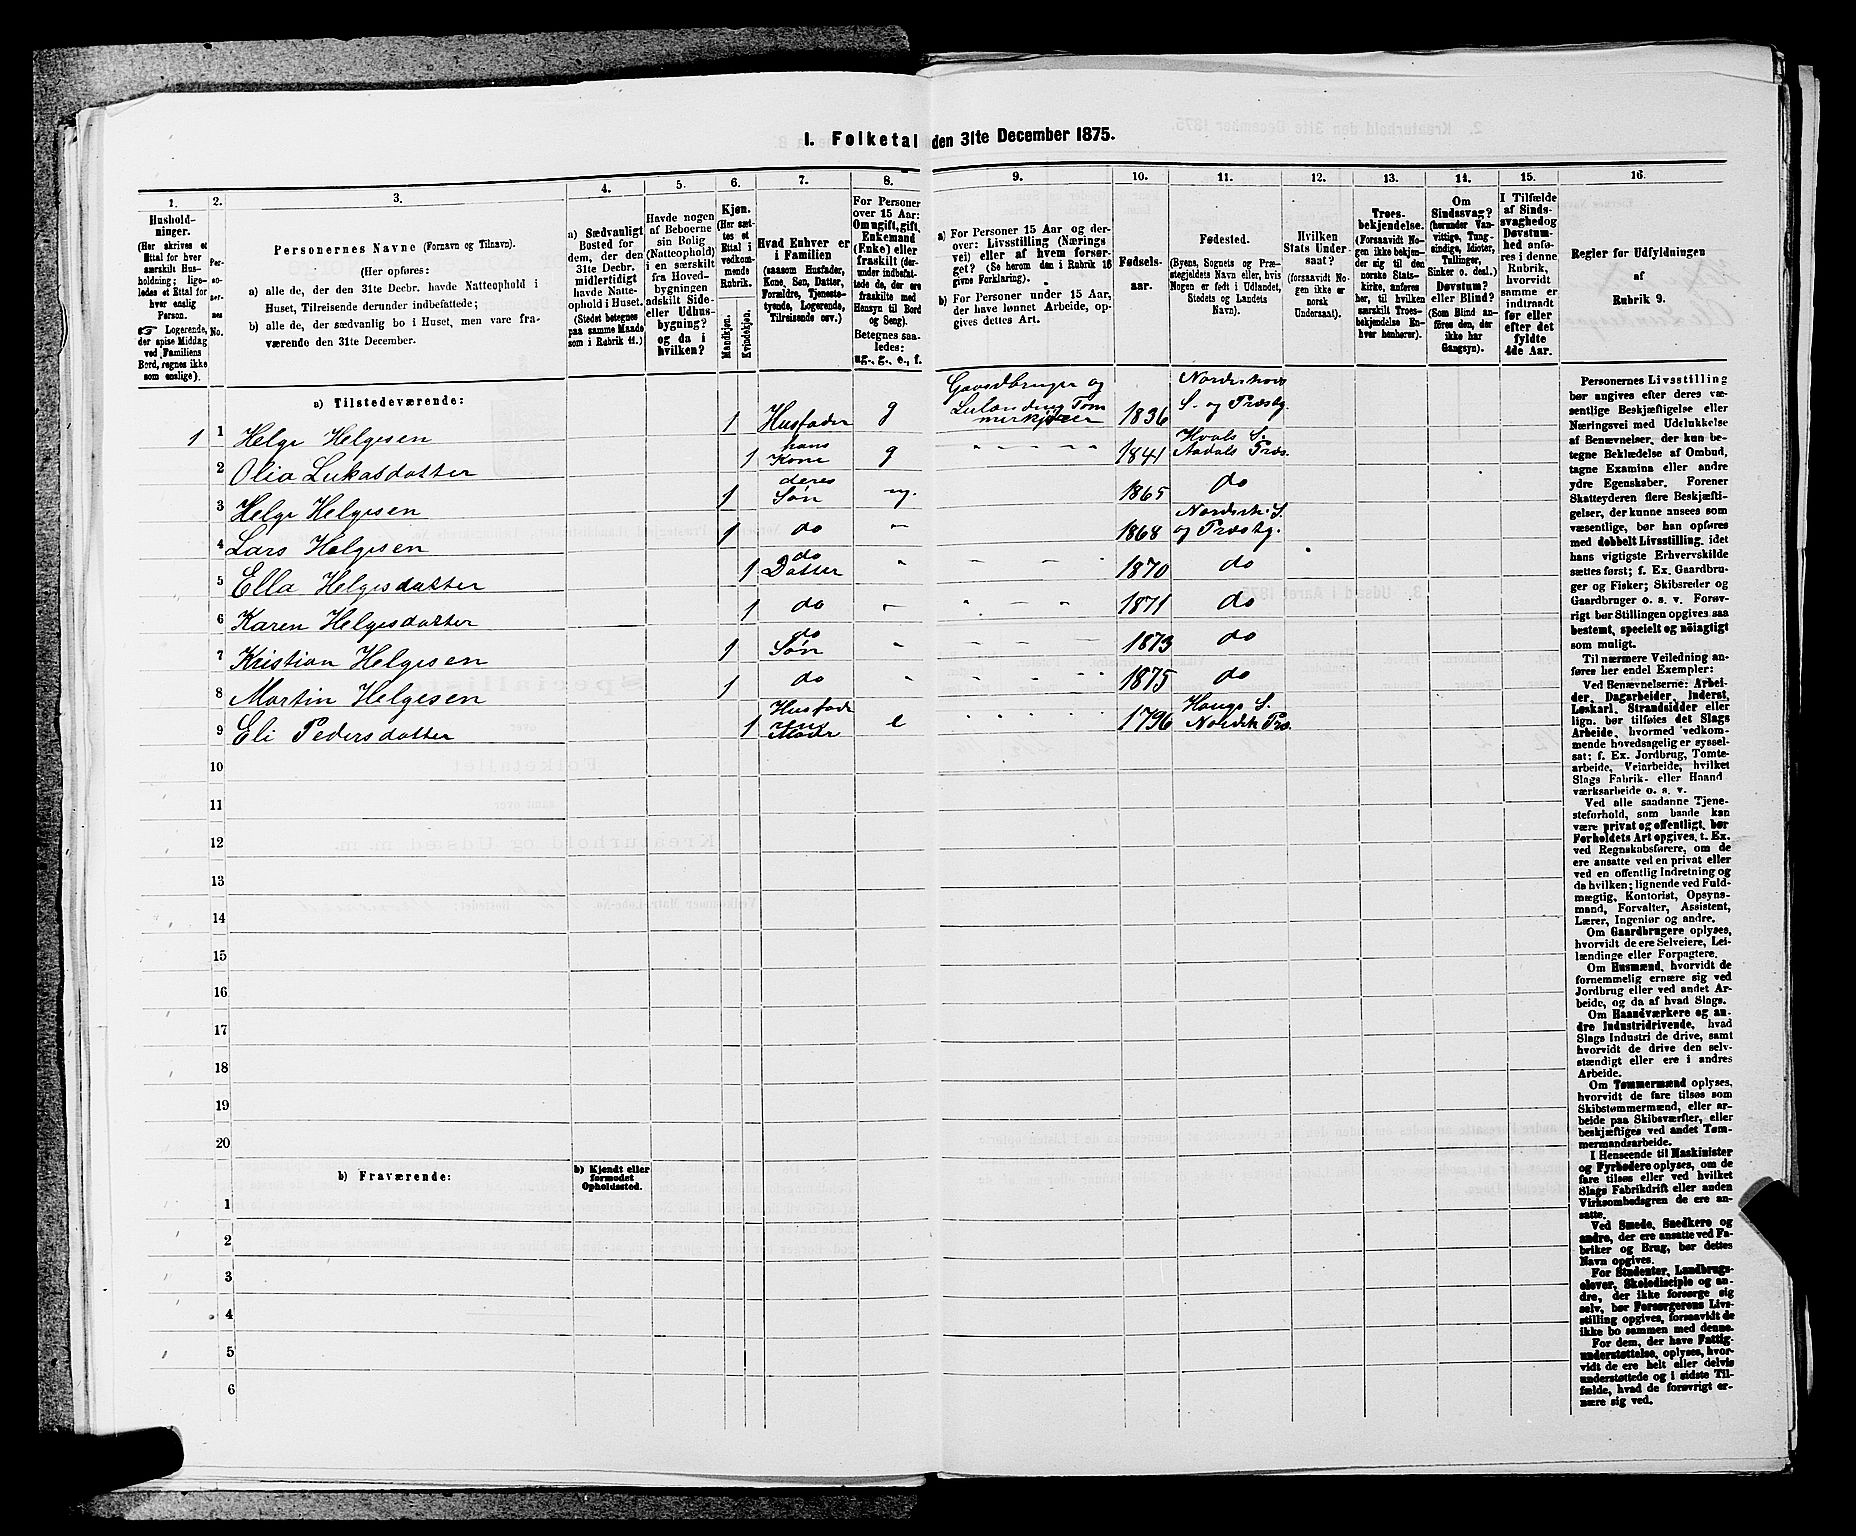 1. Folketal den 31te December 1875.
1.
2.
3.
4.
5.
6.
7.
8.
9.
10.
11.
12.
13.
14.
15.
16.
Hushold-
ninger.
(Her skrives et
Ettal for hver
særskilt Hus-
holdning; lige-
ledes et Ettal for
hver enslig
Person.
Logerende,
der spise Middag
ved Familiens
Bord, regnes ikke
som enslige).
Per-
so-
ner-
nes
No.
Personernes Navne (Fornavn og Tilnavn).
(Her opføres:
a) alle de, der den 31te Decbr. havde Natteophold i
Huset, Tilreisende derunder indbefattede;
b) alle de, der sædvanlig bo i Huset, men vare fra-
værende den 31te December.
a) Sædvanligt
Bosted for
dem, der den
31te Decbr.
midlertidigt
havde Natte-
ophold i Huset.
(Stedet betegnes
paa samme Maade
som i Rubrik 11.)
Havde nogen
af Beboerne
sin Bolig
(Natteophold)
i en særskilt
fra Hoved-
bygningen
adskilt Side-
eller Udhus-
bygning?
og da i
hvilken?
Kjøn.
(Her sæt-
tes et
Ettal i
vedkom-
mende
Rubrik.
Mandkjøn.
Kvindekjøn.
Hvad Enhver er
i Familien
(saasom Husfader,
Kone, Søn, Datter,
Forældre, Tjeneste-
tyende, Logerende,
Tilreisende osv.)
For Personer
over 15 Aar:
Om ugift, gift,
Enkemand
(Enke) eller
fraskilt (der-
under indbefat-
tede de, der ere
fraskilte med
Hensyn til Bord
og Seng).
Betegnes saa-
ledes:
ug., g., e., f.
a) For Personer 15 Aar og der-
over: Livsstilling (Nærings
vei) eller af hvem forsør-
get? (Se herom den i Rubrik 16
givne Forklaring).
b) For Personer under 15 Aar,
der have lønnet Arbeide, op-
gives dettes Art.
Fødsels-
aar.
Fødested.
(Byens, Sognets og Præ-
stegjeldets Navn eller, hvis
Nogen er født i Udlandet,
Stedets og Landets
Navn).
Hvilken
Stats Under-
saat?
(forsaavidt No-
gen ikke er
norsk
Undersaat).
Troes-
bekjendelse.
(Forsaavidt No-
gen ikke bekjen-
der sig til den
norske Stats-
kirke, anføres
her, til hvilken
særskilt Troes-
bekjendelse En-
hver henhører).
Om
Sindssvag?
(herunder Van-
vittige, Tung-
sindige, Idioter,
Tullinger,
Sinker o. desl.)
Døvstum?
eller Blind?
(Som Blind an-
føres den, der
ikke har
Gangsyn).
I Tilfælde
af Sinds-
svaghed og
Døvstum-
hed anfø-
res i denne
Rubrik,
hvorvidt
samme er
indtraadt
før eller
efter det
fyldte
4de Aar.
Regler for Udfyldningen
af
Rubrik 9.
a) Tilstedeværende:
1 1 Helge Helgesen 1 Husfader g Gaardbruger og Leilænding Tømmerkjører 1836 Norderhovs S. og Præstg.
2 Olia Lukasdatter 1 hans Kone g " " " " 1841 Hvals S. Aadals Præs.
3 Helge Helgesen 1 deres Søn ug. 1865 do
4 Lars Helgesen 1 do " 1868 Nordreh. S. og Præstg.
5 Ella Helgesdatter 1 do Datter " " " " 1870 do
6 Karen Helgesdatter 1 do " " " " 1871 do
7 Kristian Helgesen 1 do Søn " " " " 1873 do
8 Martin Helgesen 1 do " " " " 1875 do
9 Eli Pedersdatter 1 Husfaderens Moder e " " " " 1796 Haugs S. Nordrh Præ.
10
11
12
13
14
15
16
17
18
19
20
b) Fraværende:
b) Kjendt eller
formodet
Opholdssted.
1
2
3
4
5
6
Personernes Livsstilling
bør angives efter deres væ-
sentlige Beskjæftigelse eller
Næringsvei med Udelukkelse
af Benævnelser, der kun be-
tegne Beklædelse af Ombud,
tagne Examina eller andre
ydre Egenskaber. Forener
Skatteyderen flere Beskjæfti-
gelser, der kunne ansees som
væsentlige, bør han opføres
med dobbelt Livsstilling, idet
hans vigtigste Erhvervskilde
sættes først; f. Ex. Gaardbru-
ger og Fisker; Skibsreder og
Gaardbruger o. s. v. Forøv-
rigt bør Stillingen opgives saa
bestemt, specielt og nøiagtigt
som muligt.
Til nærmere Veiledning an-
føres her endel Exempler:
Ved Benævnelserne: Arbei-
der, Dagarbeider, Inderst,
Løskarl, Strandsidder eller
lign. bør tilføies det Slags
Arbeide, hvormed vedkom-
mende hovedsagelig er syssel-
sat; f. Ex. Jordbrug, Tomte-
arbeide, Veiarbeide, hvilket
Slags Fabrik- eller Haand
værksarbeide o. s. v.
Ved alle saadanne Tjene-
steforhold, som baade kan
være privat og offentligt, bør
Forholdets Art opgives, t. Ex.
ved Regnskabsførere, om de
ere ansatte ved en privat eller
ved en offentlig Indretning og
da hvilken; lignende ved Fuld-
mægtig, Kontorist, Opsyns-
mand, Forvalter, Assistent,
Lærer, Ingeniør og andre.
Om Gaardbrugere oplyses,
hvorvidt de ere Selveiere, Lei-
lændinge eller Forpagtere.
Om Husmænd, hvorvidt de
fornemmelig ernære sig ved
Jordbrug eller ved andet Ar-
beide, og da af hvad Slags.
Om Haandværkere og an-
dre Industridrivende, hvad
Slags Industri de drive, samt
hvorvidt de drive den selv-
stændigt eller ere i andres
Arbeide.
Om Tømmermænd oplyses,
hvorvidt de fare tilsøs som
Skibstømmermænd, eller ar-
beide paa Skibsværfter, eller
beskjæftiges ved andet Tøm-
mermandsarbeide.
I Henseende til Maskinister
og Fyrbødere oplyses, om de
fare tilsøs eller ved hvilket
Slags Fabrikdrift eller anden
Virksomhedsgren de ere an-
satte.
Ved Smede, Snedkere og
andre, der ere ansatte ved Fa-
briker og Brug, bør dettes
Navn opgives.
For Studenter, Landbrugs-
elever, Skoledisciple og an-
dre, der ikke forsørge sig
selv, bør Forsørgerens Livs-
stilling opgives, forsaavidt de
ikke bo sammen med denne.
For dem, der have Fattig-
understøttelse, oplyses, hvor-
vidt de ere helt eller delvis
understøttede og i sidste Til-
fælde, hvad de forøvrigt er-
nære sig ved.